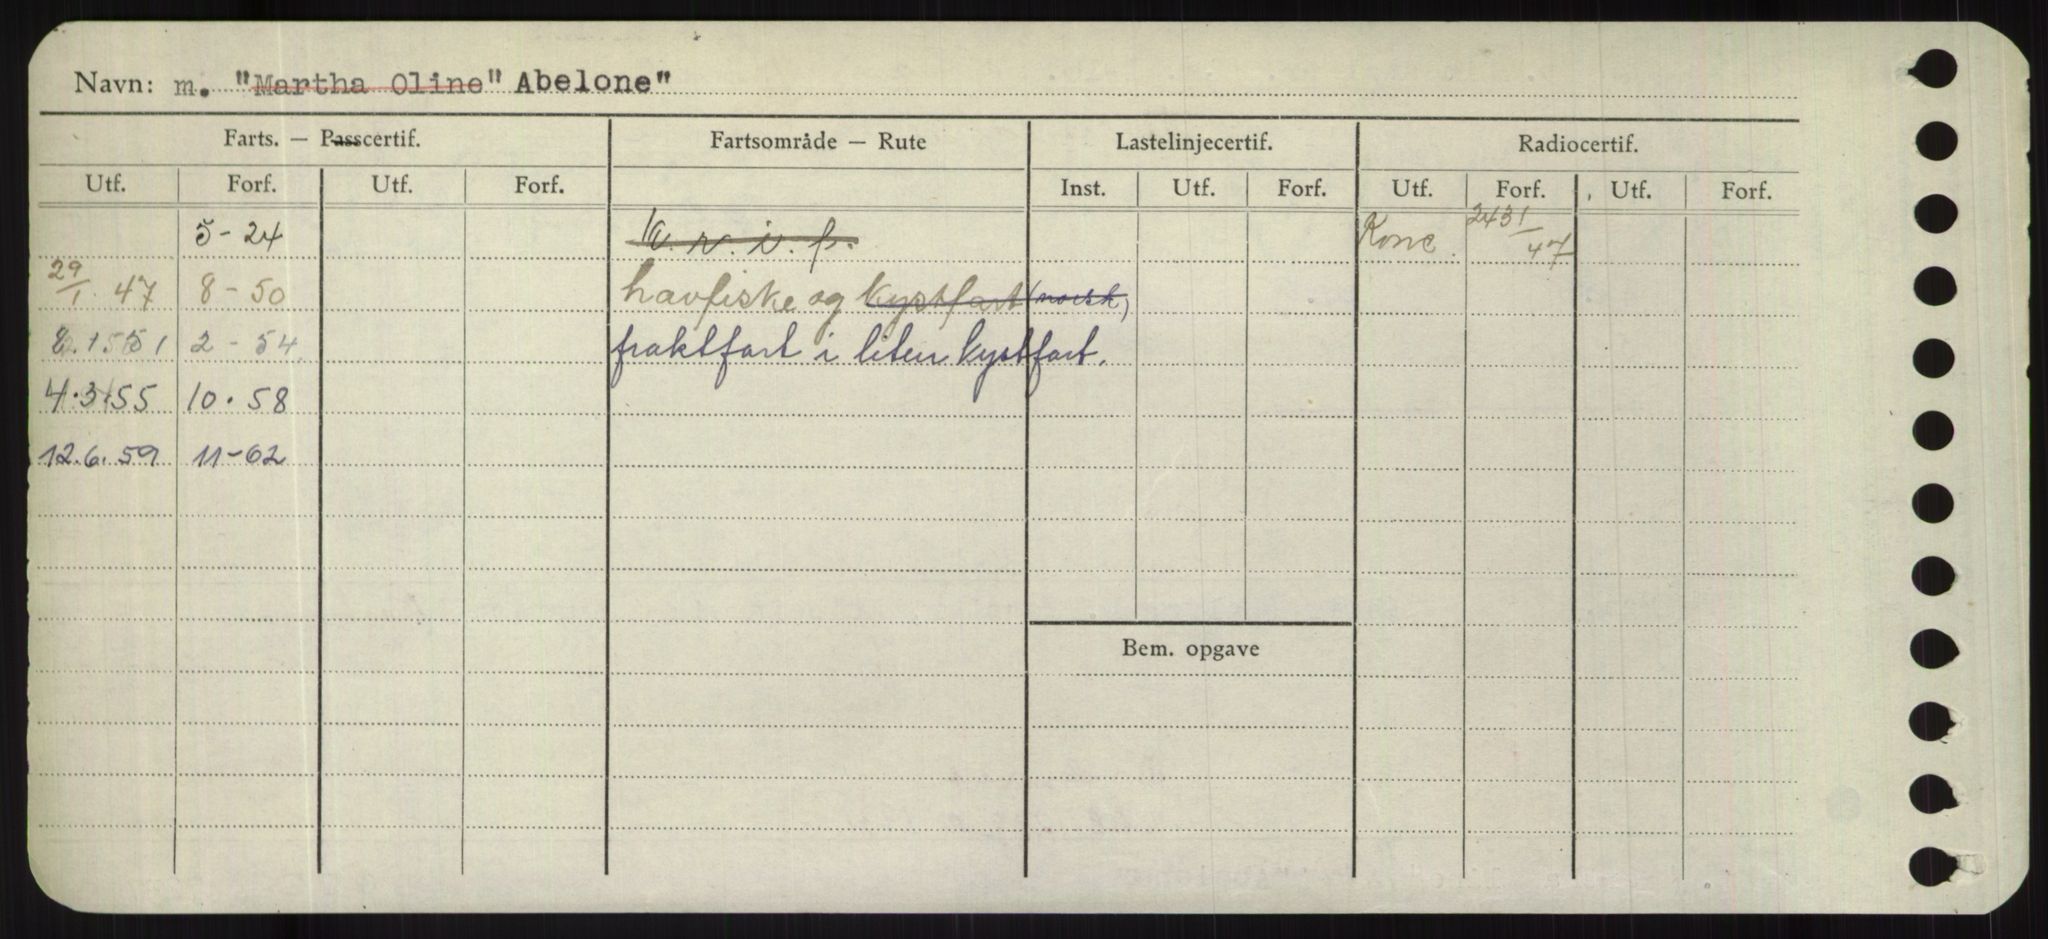 Navn: m. "Martha Oline" Abelone"
Farts. — Passcertif. Fartsområde — Rute Lastelinjecertif. Radiocertif.
Utf. Forf. Utf. Forf. Inst. Utf. Forf. Utf. Forf. Utf. Forf.
5-24 r. i. f. Konc. 2431/47
29/1. 47 8-50 havfiske og kystfart (norsk)
2-54 fraktfart i liten kystfart.
4.3.55 10.58
12.6.59 11-62
Bem. opgave